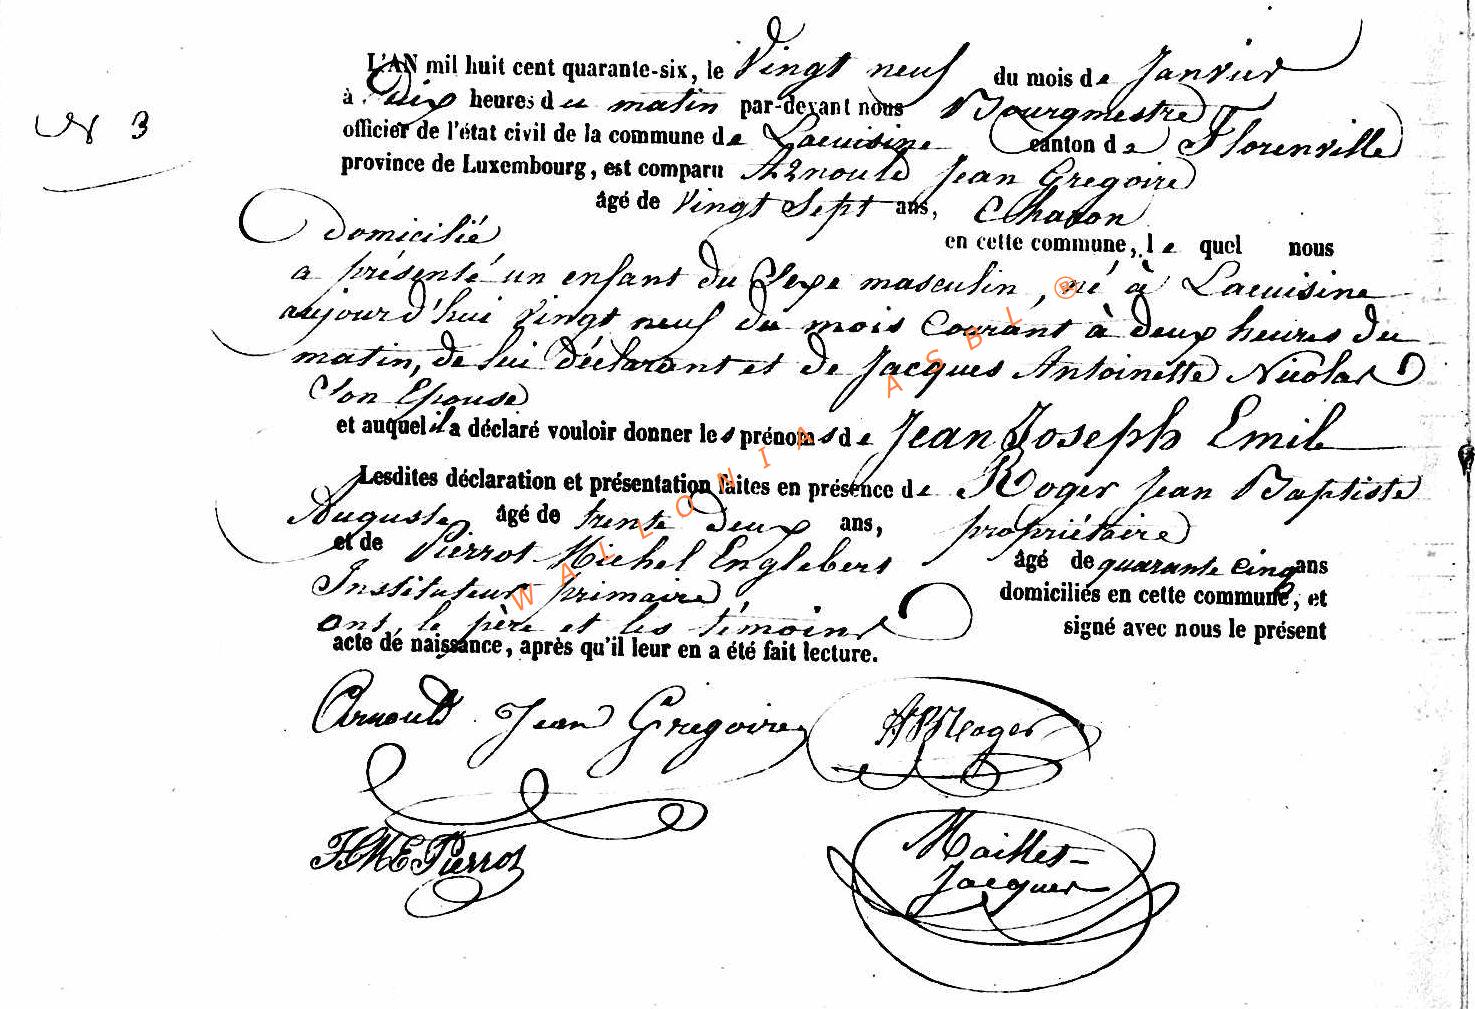 L'AN mil huit cent quarante-six, le Vingt neuf du mois de Janvier
N 3
à dix heures du matin par-devant nous Bourgmestre
officier de l'état civil de la commune de Lacuisine canton de Florenville
province de Luxembourg, est comparu Arnould Jean Gregoire
âgé de Vingt Sept ans, Charon
Domicilié en cette commune, le quel nous
a présenté un enfant du Sexe masculin, né à Lacuisine
aujourd'hui vingt neuf du mois Courant à deux heures du
matin, de lui déclarant et de Jacques Antoinette Nicolas
Son Epouse
et auquel il a déclaré vouloir donner les prénoms de Jean Joseph Emile
Lesdites déclaration et présentation faites en présence de Roger Jean Baptiste
Auguste âgé de trente deux ans, propriétaire
et de Pierrot Michel Englebert âgé de quarante cinq ans
Instituteur primaire domiciliés en cette commune, et
ont, le père et les témoins signé avec nous le présent
acte de naissance, après qu'il leur en a été fait lecture.
Arnould Jean Gregoire Roger
Pierrot
Maillet-
Jacques
WALLONIA ASBL ®